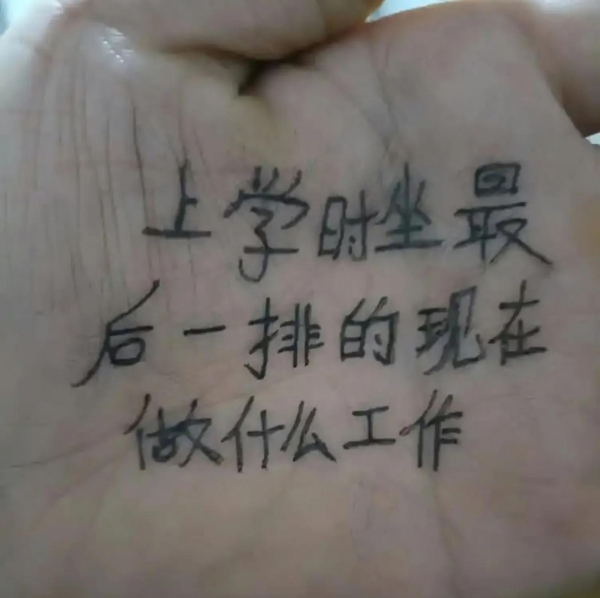 上学时坐最
后一排的现在
做什么工作